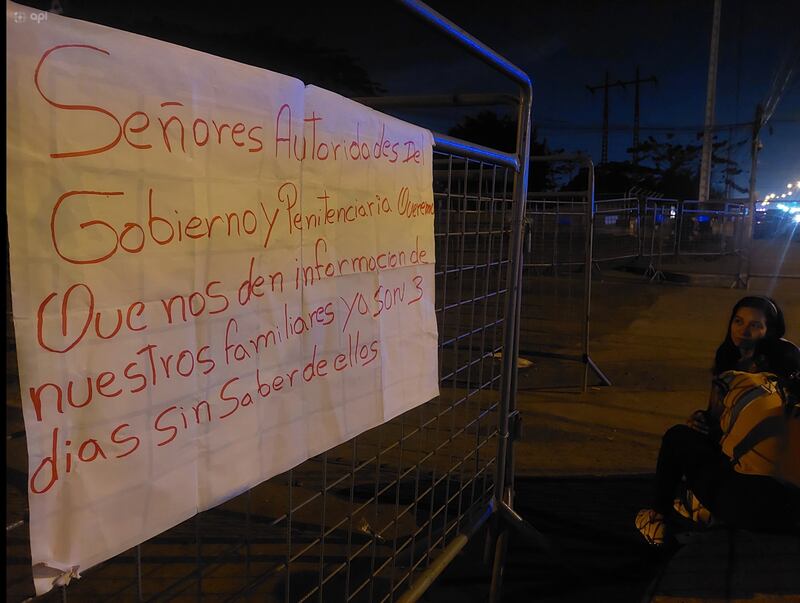 api
Señores Autoridades Del
Gobierno y Penitenciaria Queremo
Que nos den informacion de
nuestros familiares ya son 3
dias sin Saber de ellos